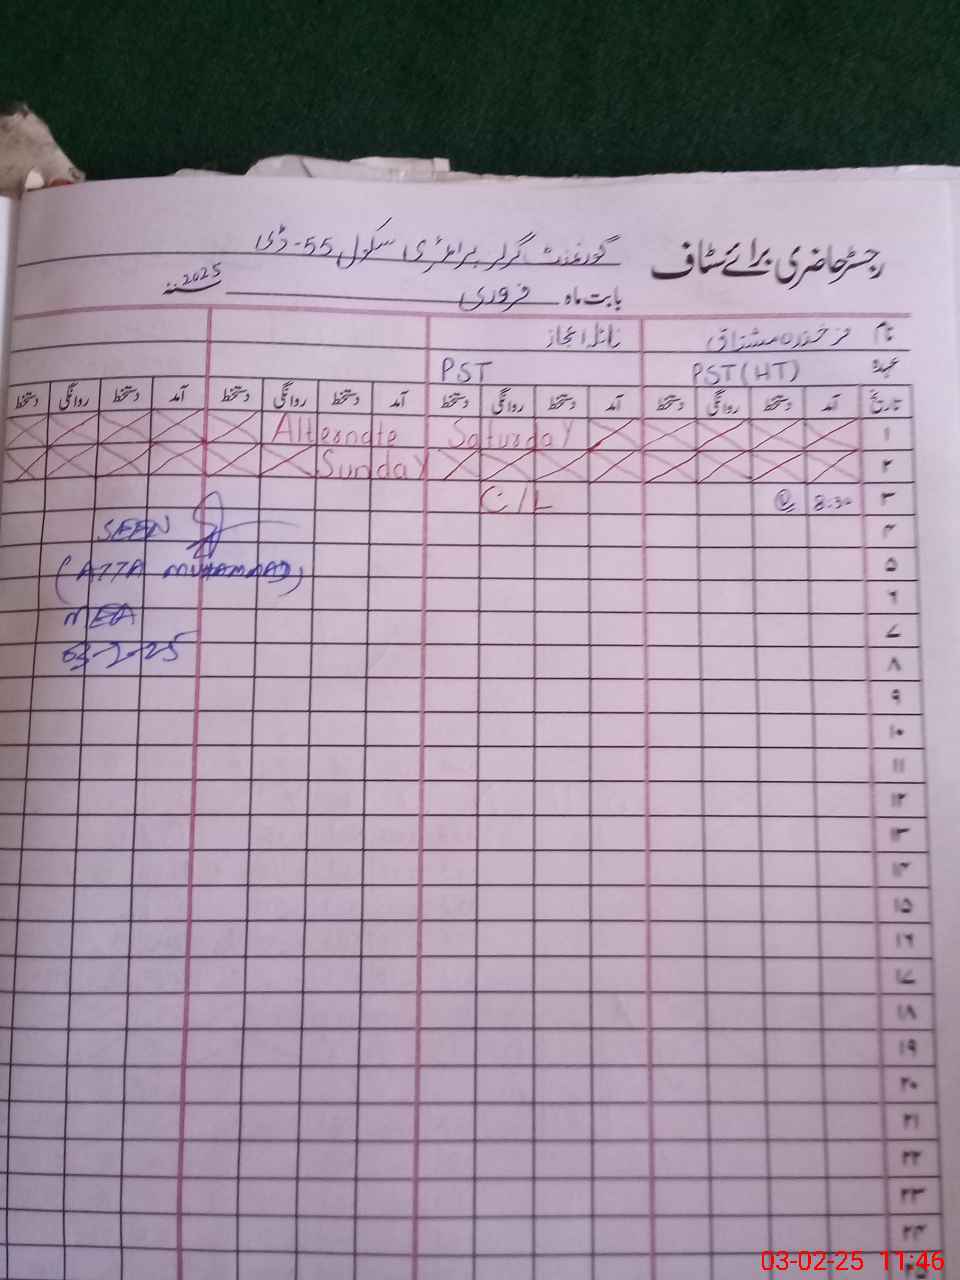 رجسٹر حاضری برائے سٹاف
گورنمنٹ گرلز پرائمری سکول 55-ڈی
بابت ماہ فروری 2025
نام فرخندہ مشتاق
عہدہ PST(HT) PST
تاریخ آمد دستخط روانگی دستخط آمد دستخط روانگی دستخط آمد دستخط روانگی دستخط آمد دستخط روانگی دستخط
۱ Alternate Saturday
۲ Sunday
۳ 8:30 C/L
۴
۵
۶
۷
۸
۹
۱۰
۱۱
۱۲
۱۳
۱۴
۱۵
۱۶
۱۷
۱۸
۱۹
۲۰
۲۱
۲۲
۲۳
۲۴
۲۵
SEEN
(ATTA MUHAMMAD)
MEA
03-2-25
03-02-25 11:46